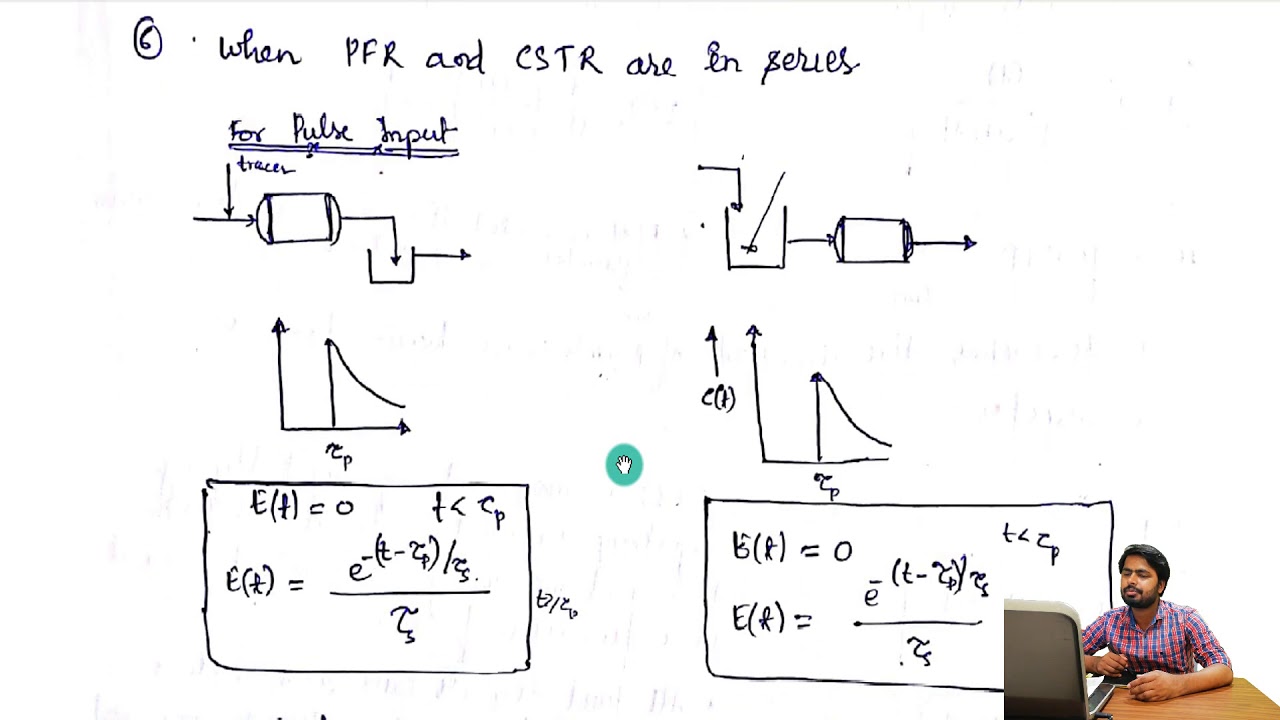 ⑥ . When PFR and CSTR are in series
For Pulse Input
tracer
τp
E(t) = 0 t < τp
E(t) = e^-(t-τp)/τs / τs t≥τp
C(t)
τp
E(t) = 0 t < τp
E(t) = e^-(t-τp)/τs / τs